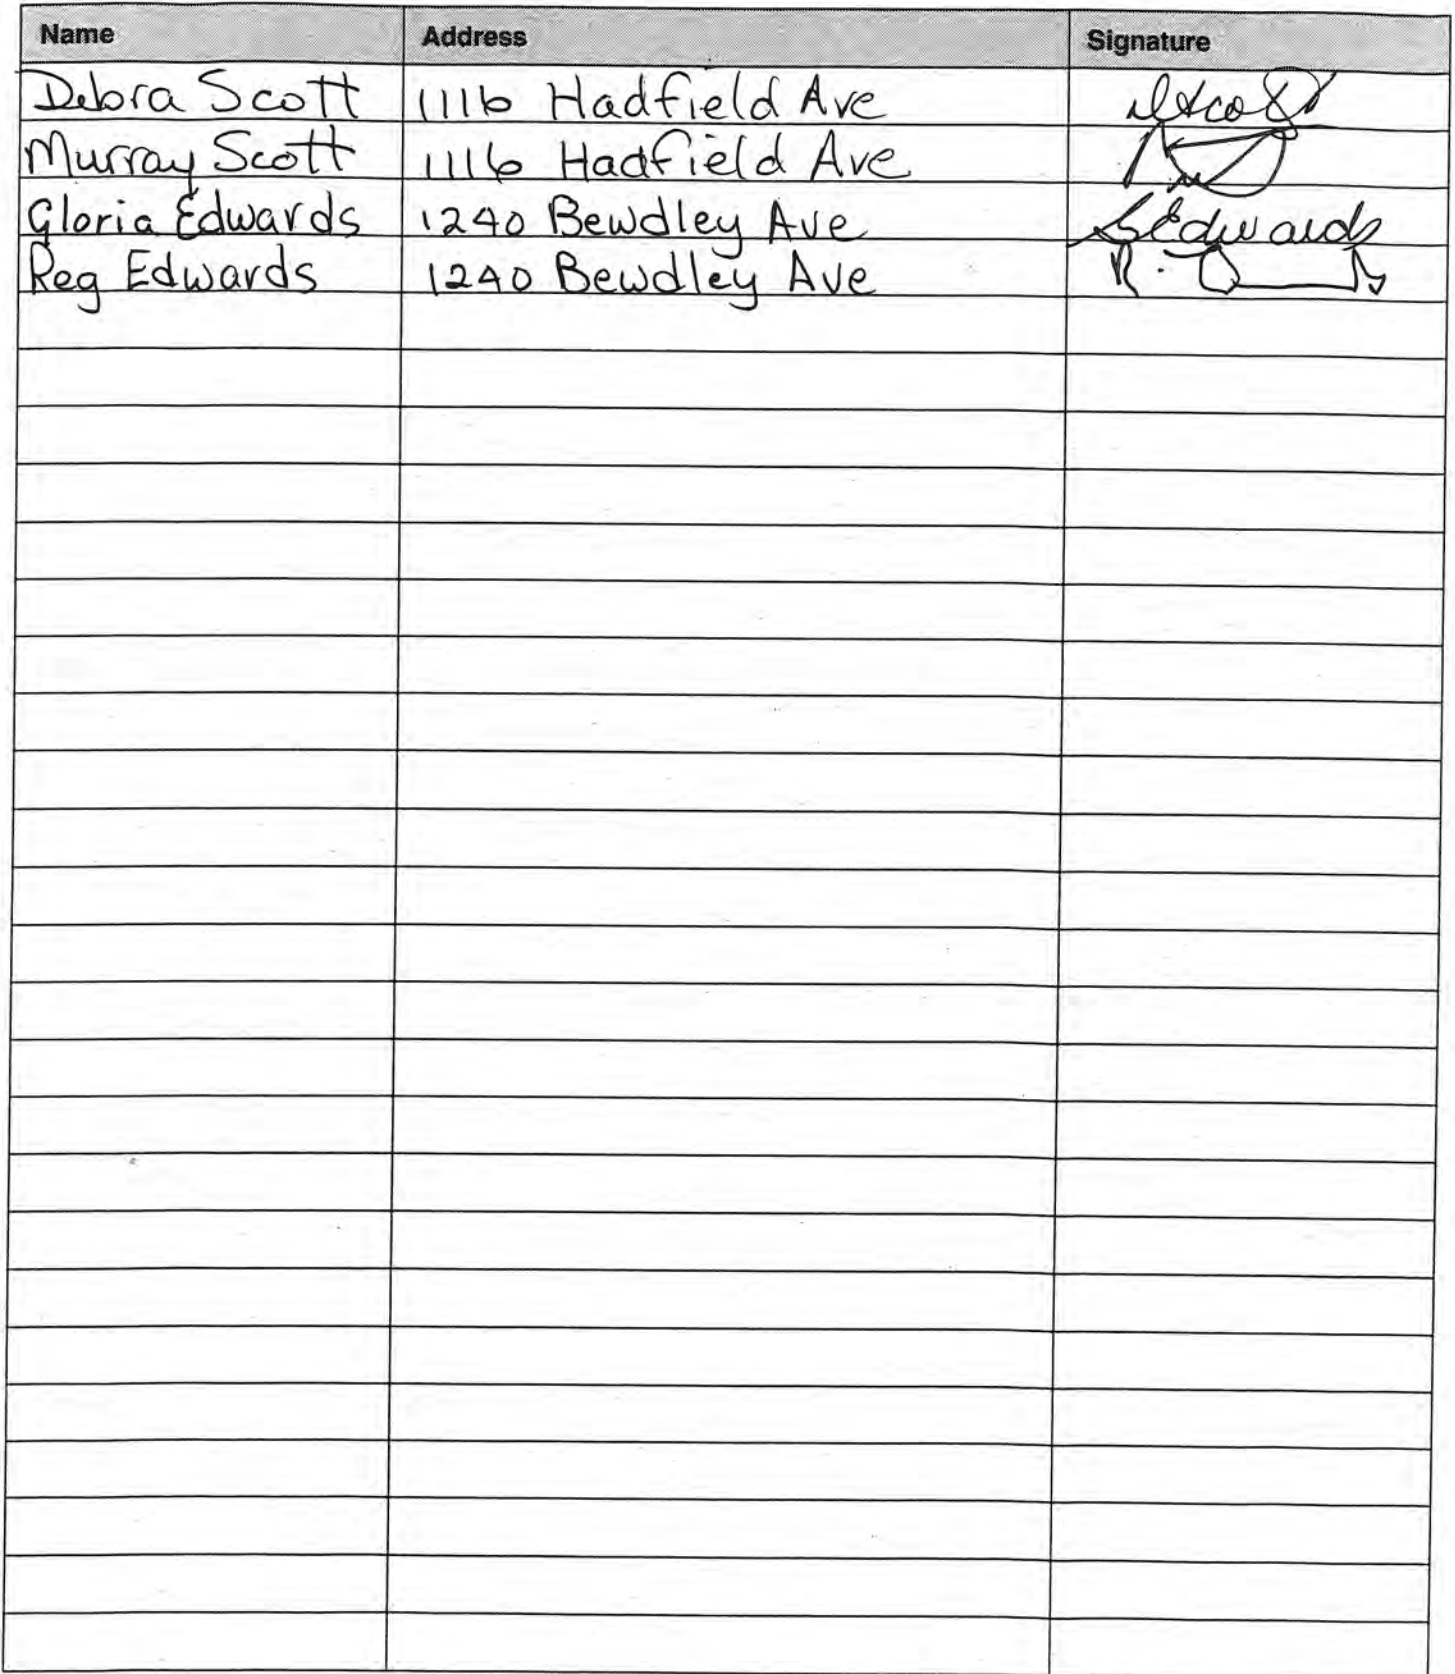 Name Address Signature
Debra Scott 1116 Hadfield Ave DScott
Murray Scott 1116 Hadfield Ave
Gloria Edwards 1240 Bewdley Ave GEdwards
Reg Edwards 1240 Bewdley Ave R.